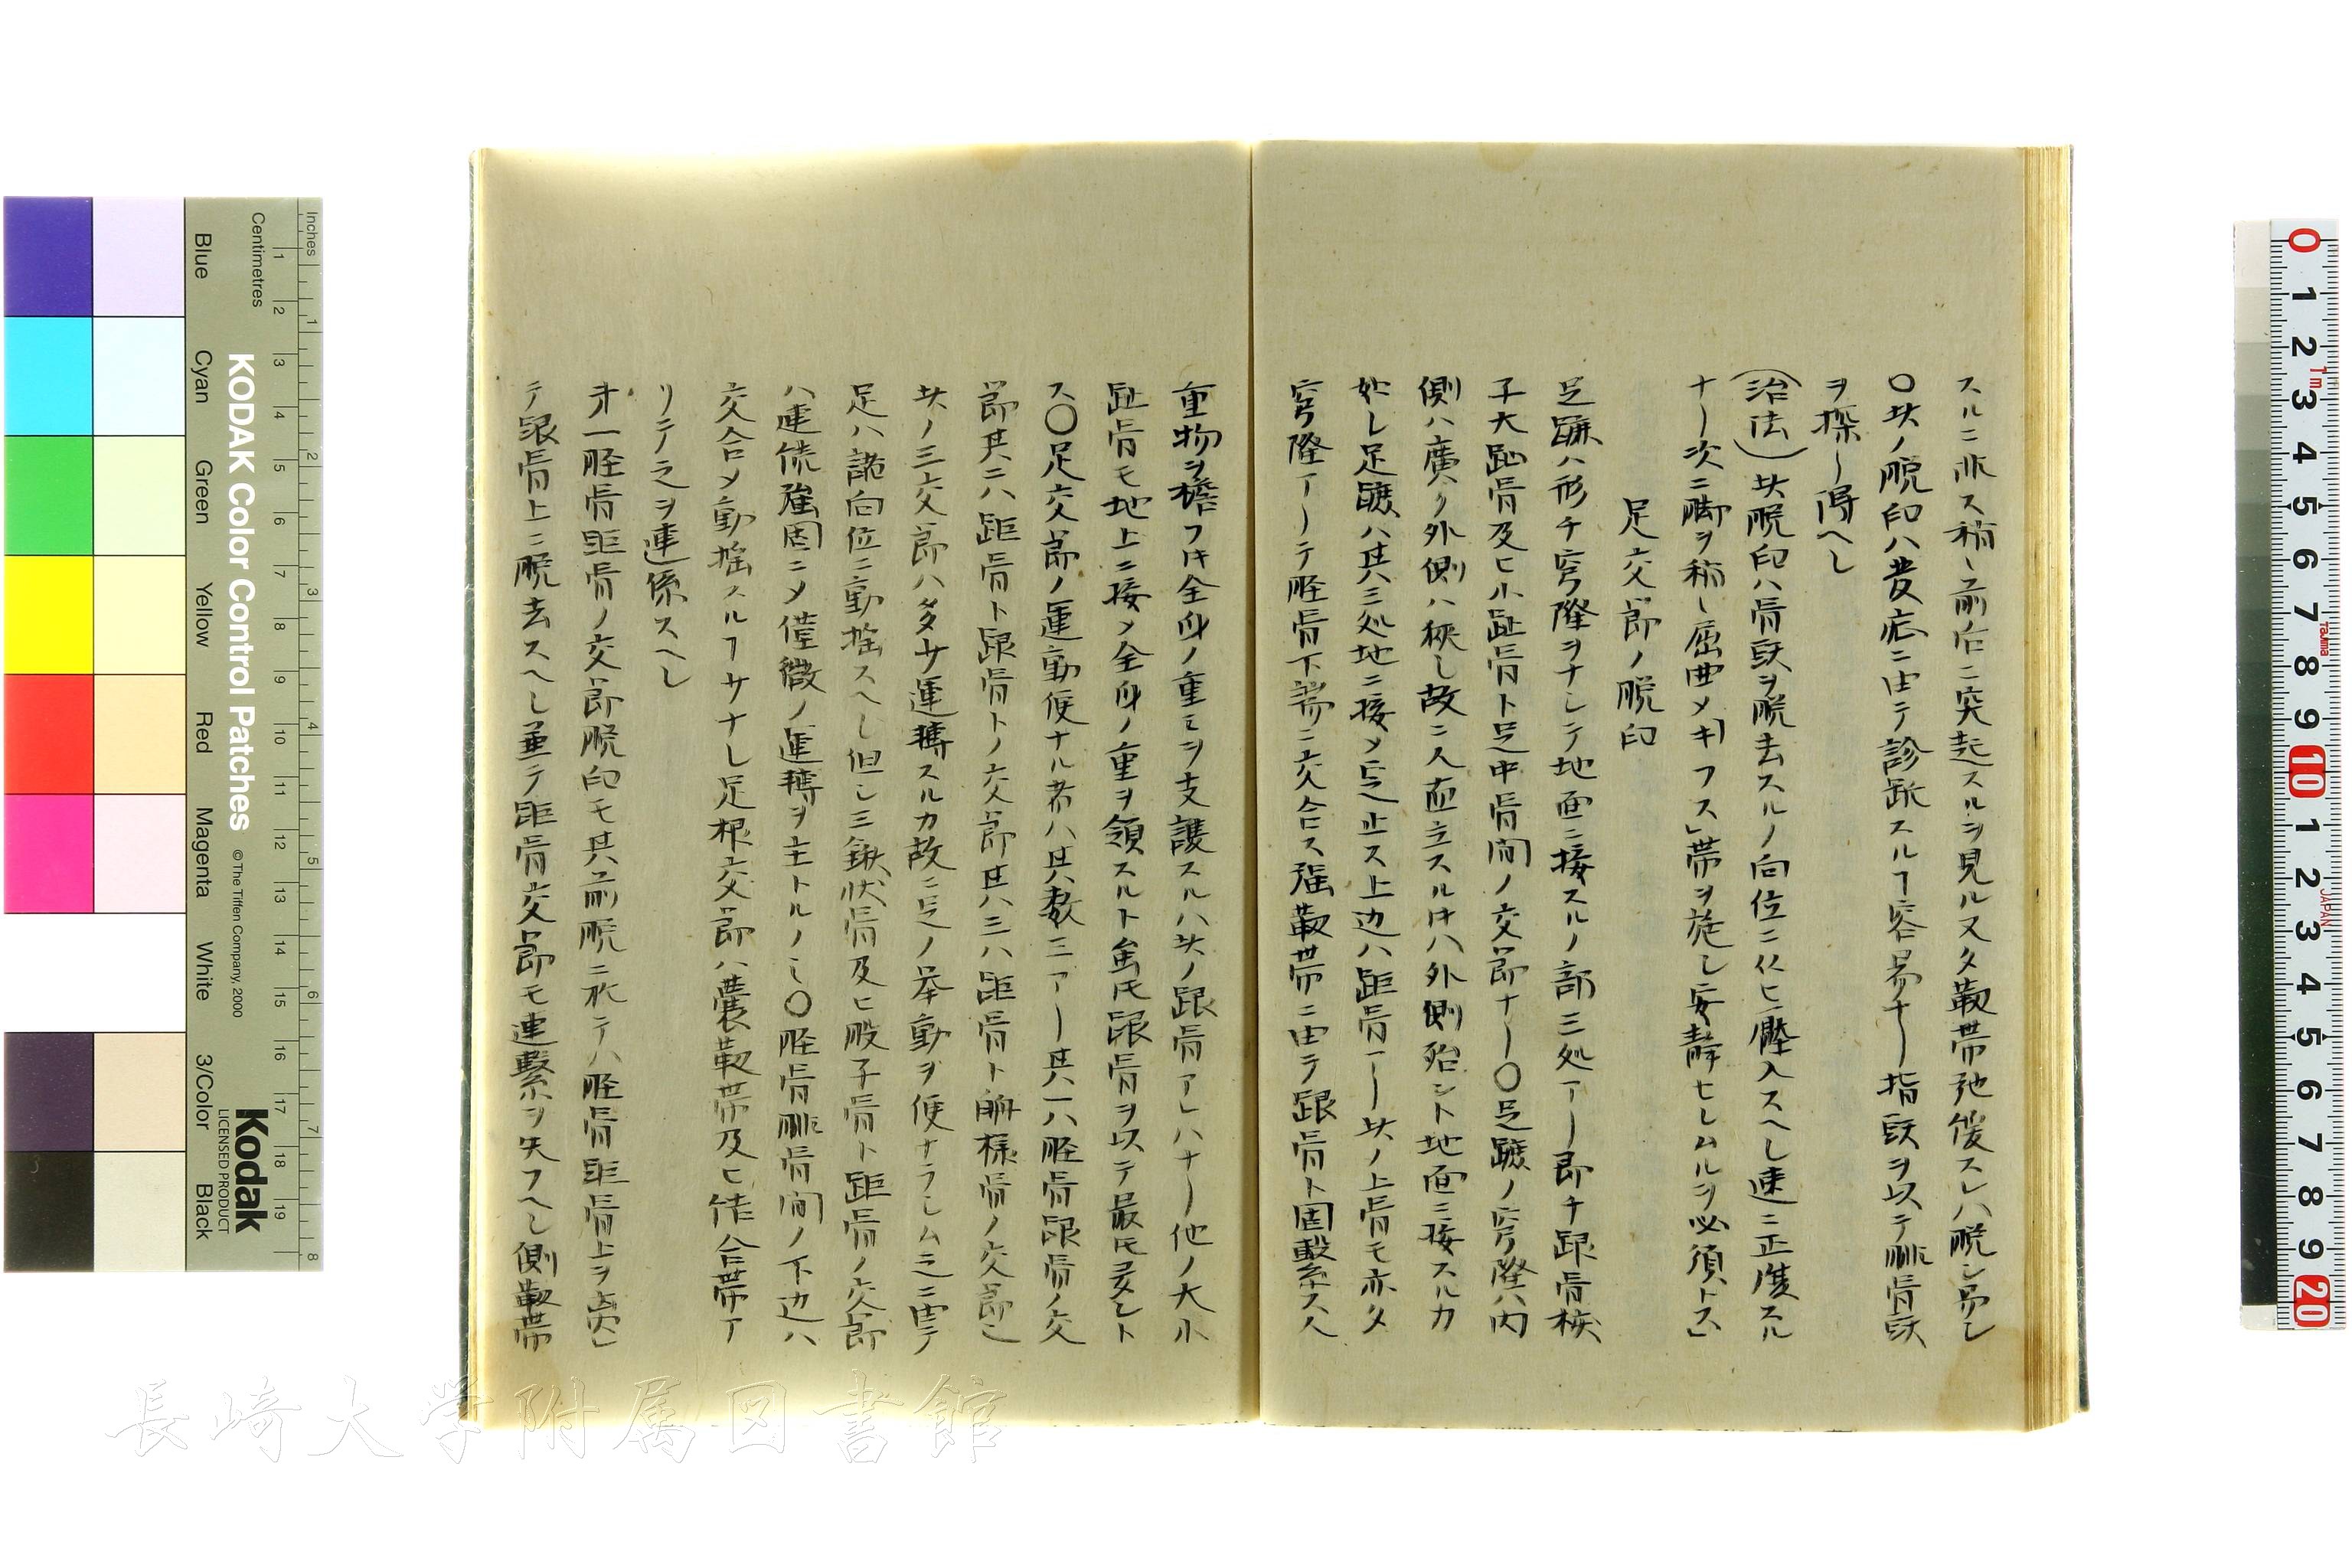 スルニ非ス稍〻前后ニ突起スルヲ見ル又タ靱帯弛緩スレハ脱シ易シ
〇此ノ脱臼ハ發症ニ由テ診断スルヿ容易ナリ指頭ヲ以テ腓骨頭
ヲ探リ得ヘシ
(治法)此脱臼ハ骨頭ヲ脱去スルノ向位ニ従ヒ壓入スヘシ速ニ正復スル
ナリ次ニ脚ヲ稍〻屈曲メキフス」帯ヲ施シ安静セシムルヲ必須トス」
足交節ノ脱臼
足蹠ハ形チ穹隆ヲナシテ地面ニ接スルノ部三処アリ即チ跟骨核
子大趾骨及ヒ小趾骨ト足中骨間ノ交節ナリ〇足蹠ノ穹隆ハ内
側ハ廣ク外側ハ狭シ故ニ人直立スル𪜈ハ外側殆ント地面ニ接スルカ
如シ足蹠ハ其三処地ニ接メ足止ス上辺ハ距骨アリ此ノ上骨モ亦タ
穹隆アリテ脛骨下端ニ交合ス強靱帯ニ由テ跟骨ト固繋ス人
重物ヲ擔フ𪜈全身ノ重モヲ支護スルハ此ノ跟骨アレハナリ他ノ大小
趾骨モ地上ニ接メ全身ノ重ヲ領スルト虽𪜈跟骨ヲ以テ最𪜈夛シト
ス〇足交節ノ運動便ナル者ハ其数三アリ其一ハ脛骨跟骨ノ交
節其二ハ距骨ト跟骨トノ交節其三ハ距骨ト舟様骨ノ交節也
此ノ三交節ハ多少運轉スルカ故ニ足ノ挙動ヲ便ナラシム之ニ由テ
足ハ諸向位ニ動揺スヘシ但シ三鍬状骨及ヒ骰子骨ト距骨ノ交節
ハ連績強固ニメ僅微ノ運轉ヲ主トルノミ〇脛骨腓骨間ノ下辺ハ
交合メ動揺スルヿサナシ足根交節ハ嚢靱帯及ヒ併合帯ア
リテ之ヲ連係スヘシ
才一脛骨距骨ノ交節脱臼モ其前脱ニ於テハ脛骨距骨上ヲ歯」
テ跟骨上ニ脱去スヘシ並テ距骨交節モ連繋ヲ失フヘシ側靱帯